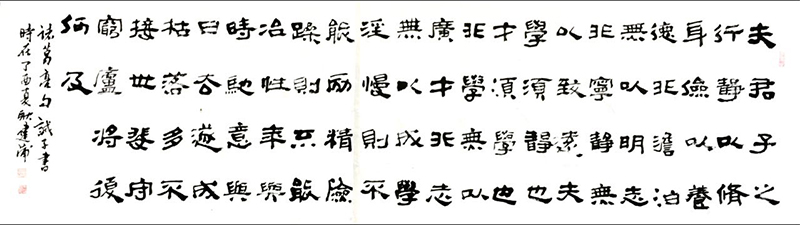 夫君子之
行靜以脩
身儉以養
德非澹泊
無以明志
非寧靜無
以致遠夫
學須靜也
才須學也
非學無以
廣才非志
無以成學
淫慢則不
能励精險
躁則不能
冶性年與
時馳意與
日去遂成
枯落多不
接世悲守
窮廬將復
何及
諸葛亮句誡子書
時在丁酉夏建蒲